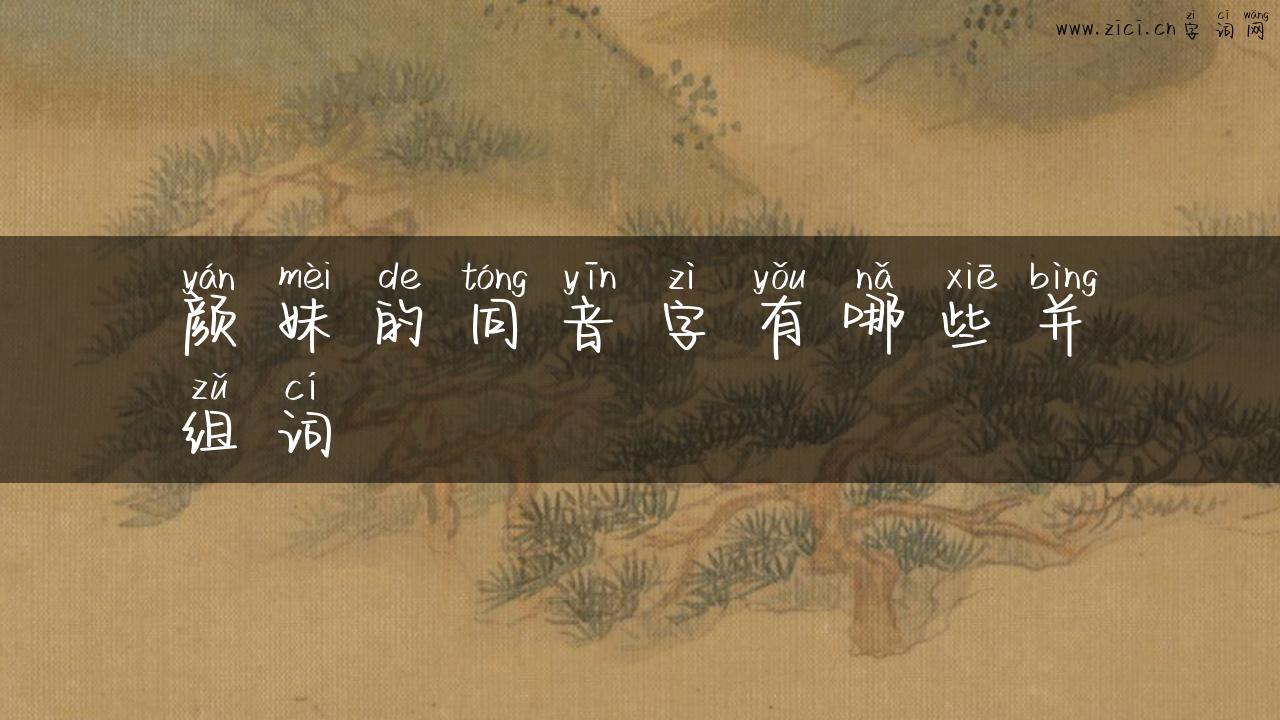 zì cí wǎng
www.zici.cn 字词网
yán mèi de tóng yīn zì yǒu nǎ xiē bìng
颜妹的同音字有哪些并
zǔ cí
组词